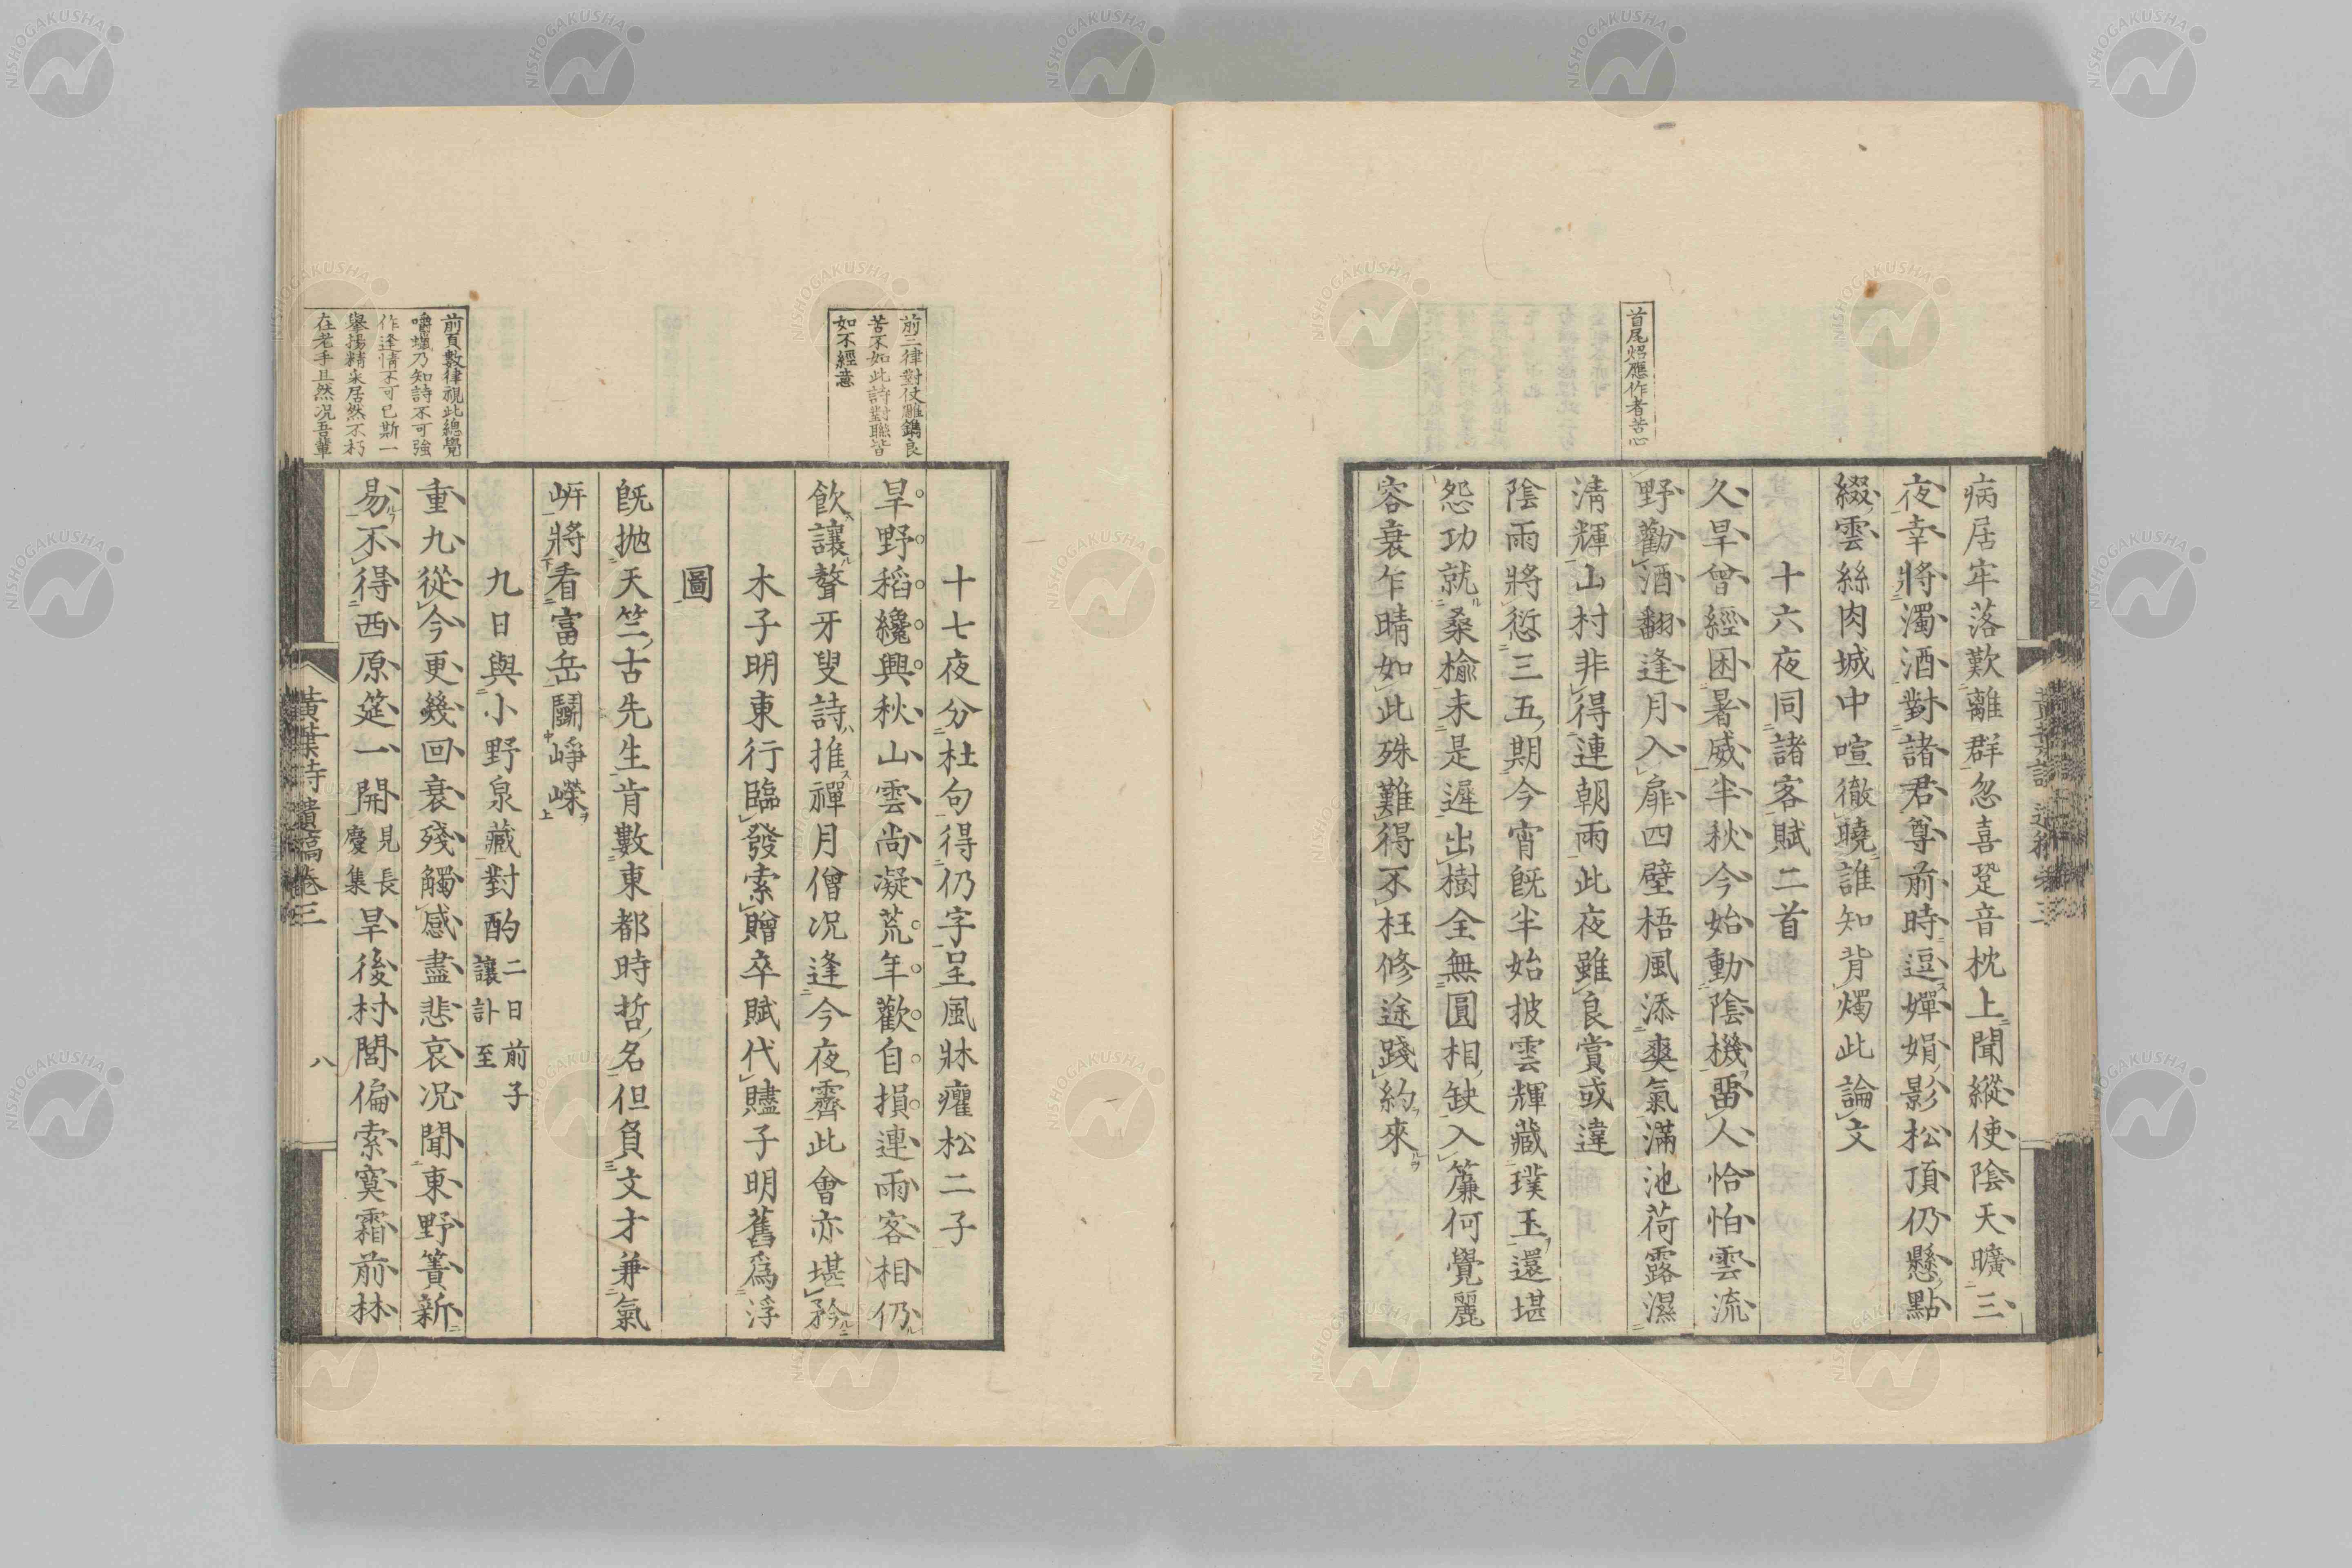 首尾炤應作者苦心
病居牢落歎離群忽喜跫音枕上聞縱使陰天曠三
夜幸將濁酒對諸君尊前時逗嬋娟影松頂仍懸點
綴雲絲肉城中喧徹曉誰知背燭此論文
十六夜同諸客賦二首
久旱曾經困暑威半秋今始動陰機畱人恰怕雲流
野勸酒翻逢月入扉四壁梧風添爽氣滿池荷露濕
淸輝山村非得連朝雨此夜雖良賞或違
陰雨將愆三五期今宵旣半始披雲輝藏璞玉還堪
怨功就桑榆未是遲出樹全無圓相缺入簾何覺麗
容衰乍晴如此殊難得不枉修途踐約來
前二律對仗雕鐫良
苦不如此詩對聯皆
如不經意
十七夜分杜句得仍字呈風牀癯松二子
旱野稻纔興秋山雲尚凝荒年歡自損連雨客相仍
飲讓聱牙叟詩推禪月僧況逢今夜霽此會亦堪矜
木子明東行臨發索贈卒賦代贐子明舊爲浮
圖
旣抛天竺古先生肯數東都時哲名但負文才兼氣
岍將看富岳鬭崢嶸
九日與小野泉藏對酌二日前子讓訃至
前頁數律視此總覺
嚼蠟乃知詩不可強
作逢情不可已斯一
擧揚精采居然不朽
在老手且然况吾輩
重九從今更幾回衰殘觸感盡悲哀況聞東野簀新
易不得西原筵一開見長慶集旱後村閭偏索寞霜前林
黃葉詩遺稿卷三
八